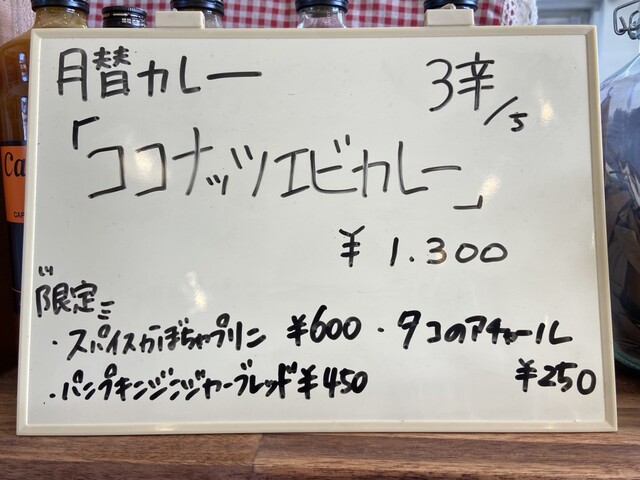 月替カレー 3辛/5
「ココナッツエビカレー」
¥1.300
限定
・スパイスかぼちゃプリン ¥600 ・タコのアチャール
・パンプキンジンジャーブレッド ¥450 ¥250